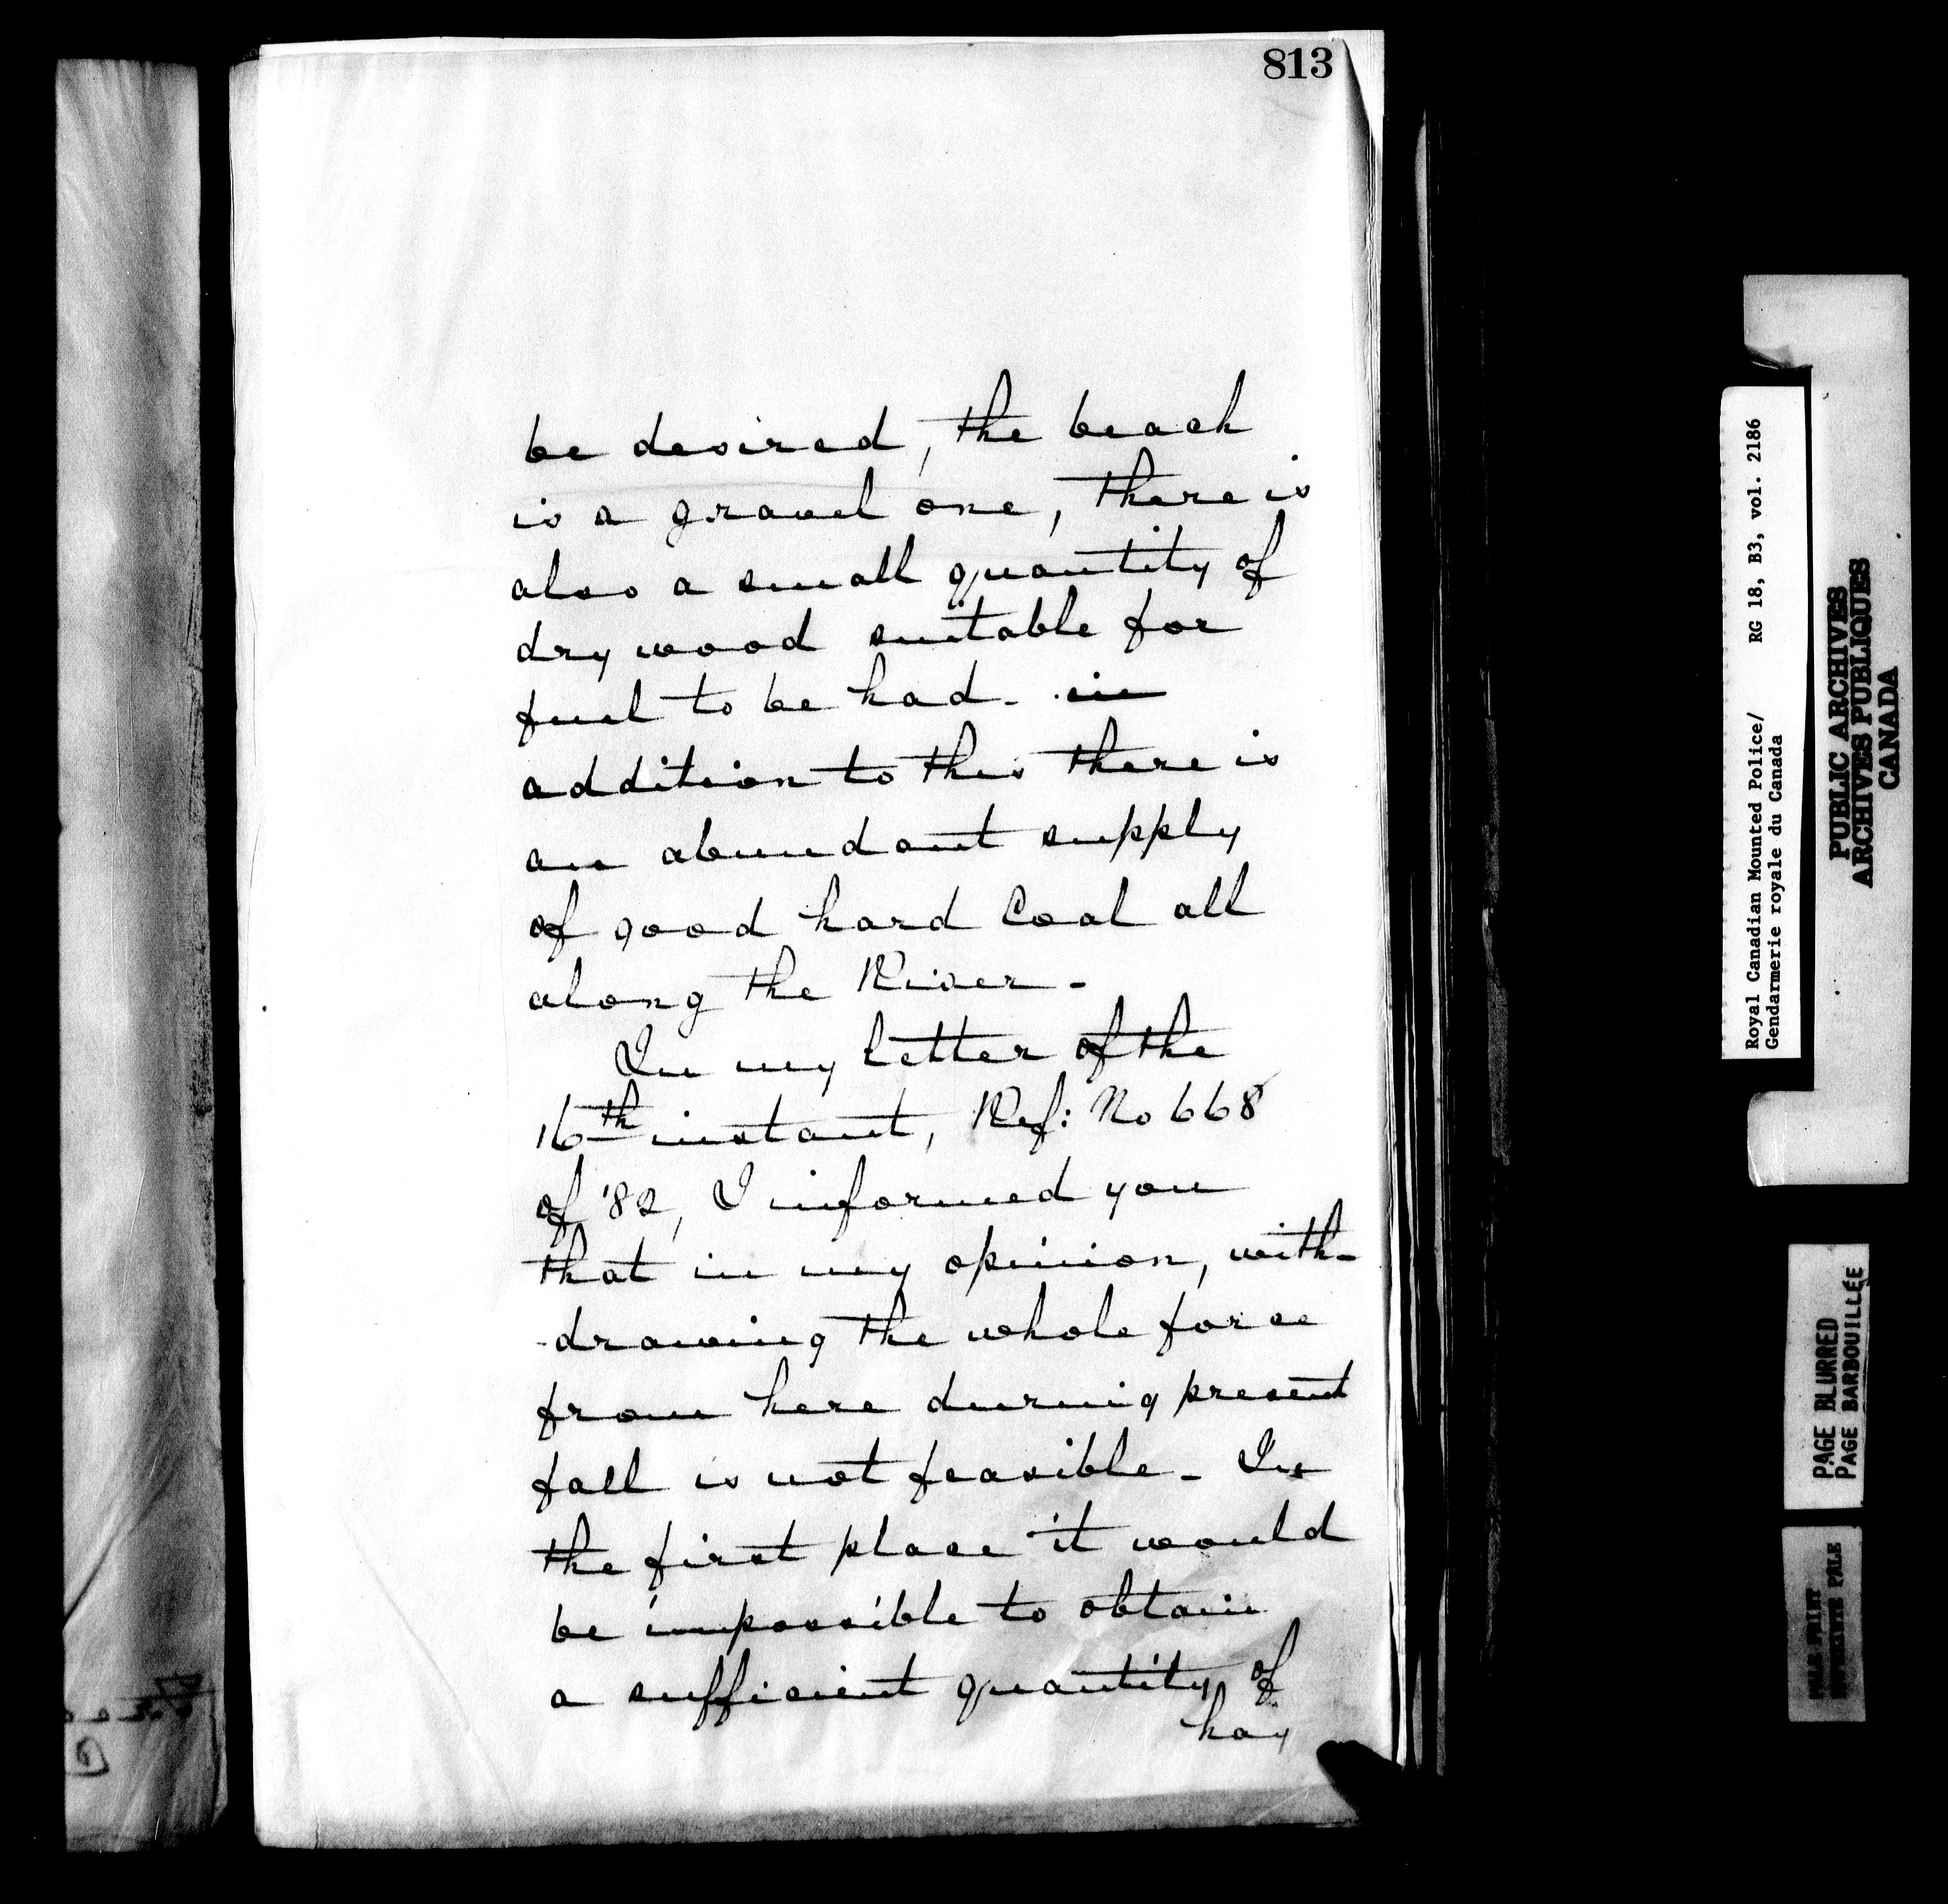 813
be desired, the beach
is a gravel one, there is
also a small quantity of
dry wood suitable for
fuel to be had - in
addition to this there is
an abundant supply
of good hard Coal all
along the River -
In my letter of the
16th instant, Ref: No 668
of '82, I informed you
that in my opinion, with-
-drawing the whole force
from here during present
fall is not feasible - In
the first place it would
be impossible to obtain
a sufficient quantity of
hay
Royal Canadian Mounted Police/ RG 18, B3, vol. 2186
Gendarmerie royale du Canada
PUBLIC ARCHIVES
ARCHIVES PUBLIQUES
CANADA
PAGE BLURRED
PAGE BARBOUILLÉE
PALE PRINT
IMPRIMÉE PALE